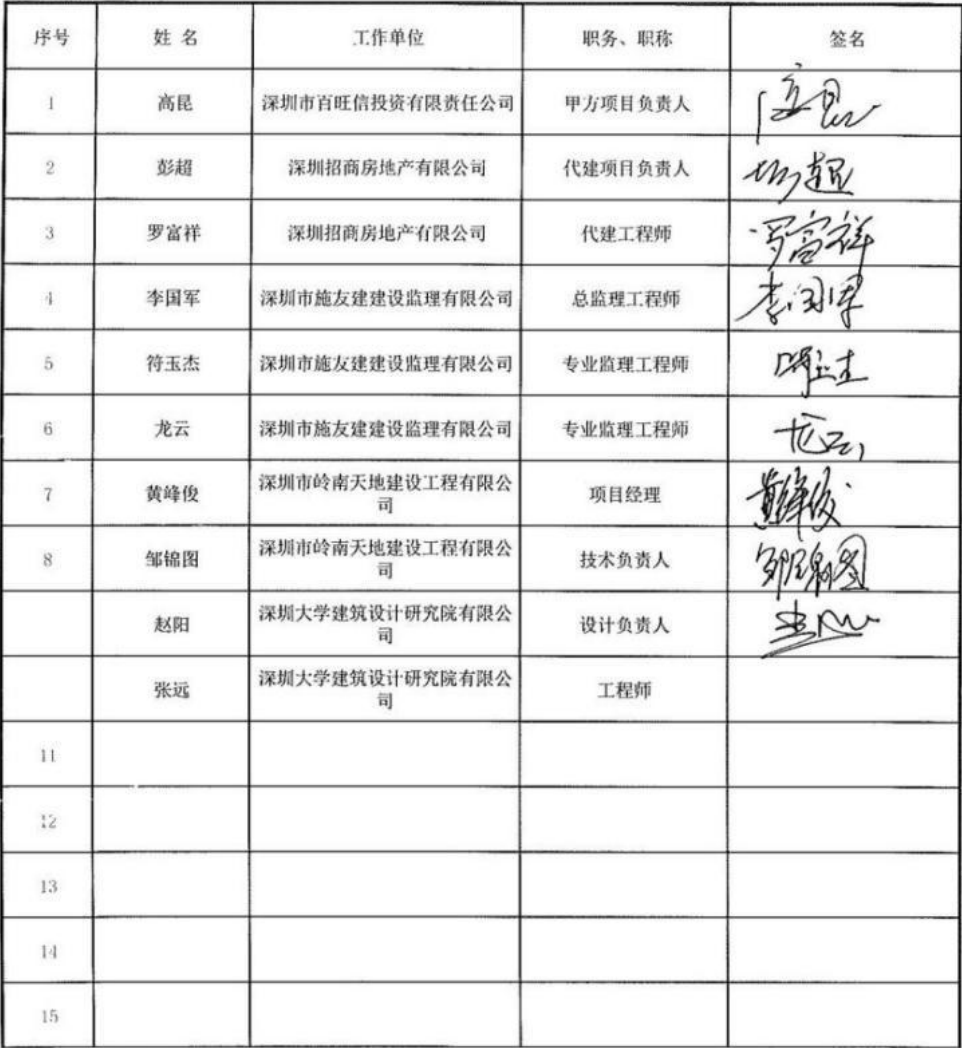 序号 姓 名 工作单位 职务、职称 签名
1 高昆 深圳市百旺信投资有限责任公司 甲方项目负责人 高昆
2 彭超 深圳招商房地产有限公司 代建项目负责人
3 罗富祥 深圳招商房地产有限公司 代建工程师 罗富祥
4 李国军 深圳市施友建建设监理有限公司 总监理工程师 李国军
5 符玉杰 深圳市施友建建设监理有限公司 专业监理工程师 符玉杰
6 龙云 深圳市施友建建设监理有限公司 专业监理工程师 龙云
7 黄峰俊 深圳市岭南天地建设工程有限公
司 项目经理 黄峰俊
8 邹锦图 深圳市岭南天地建设工程有限公
司 技术负责人 邹锦图
赵阳 深圳大学建筑设计研究院有限公
司 设计负责人
张远 深圳大学建筑设计研究院有限公
司 工程师
11
12
13
14
15